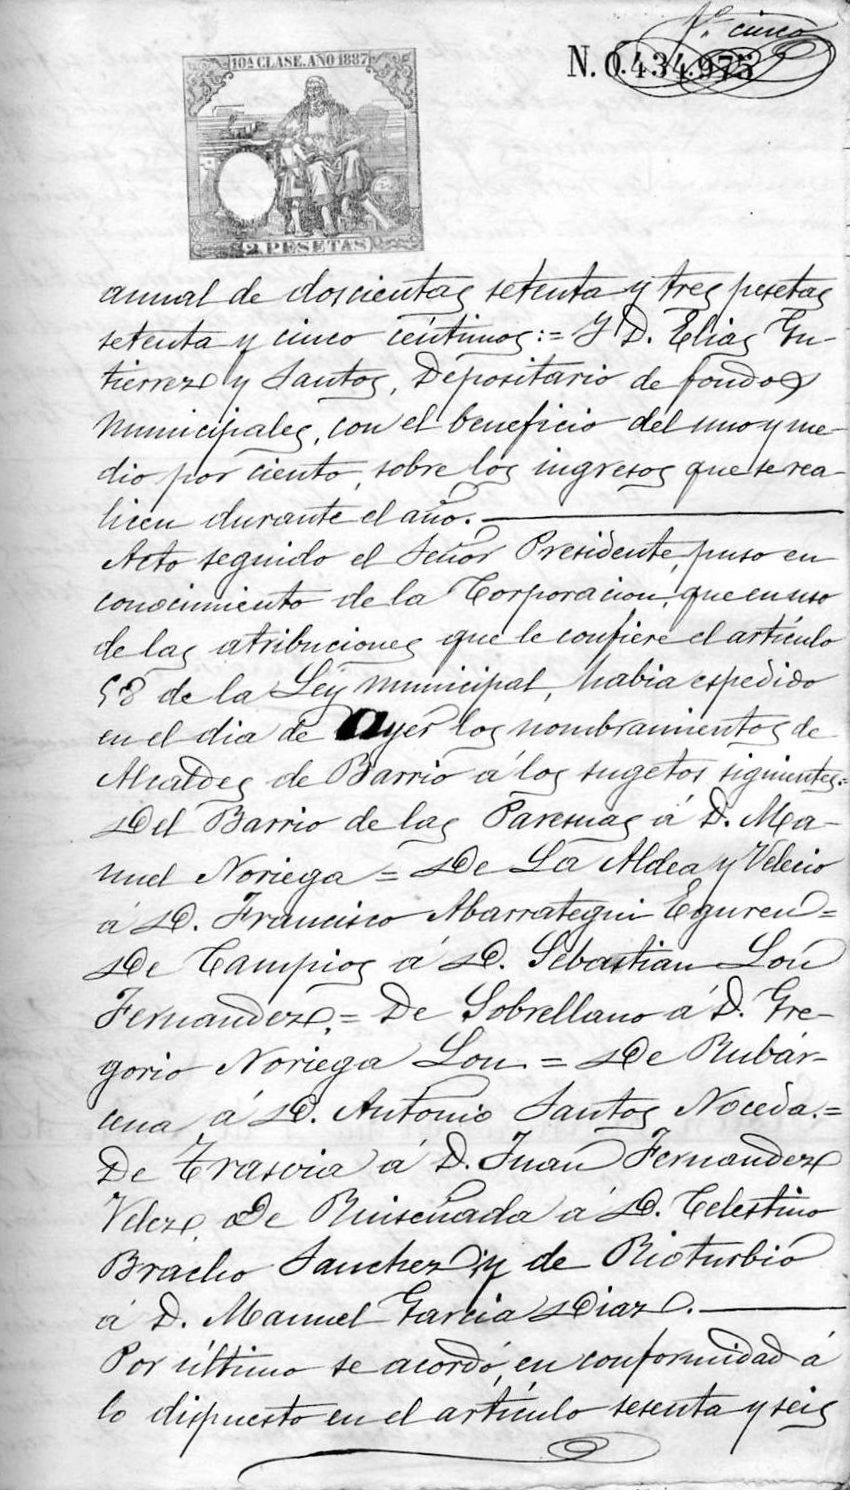 fº cinco
10A CLASE. AÑO 1887
N. 0.434.975
2 PESETAS
annual de doscientas setenta y tres pesetas
setenta y cinco céntimos:= Y D. Elias Gu-
tierrez y Santos, Depositario de fondos
municipales, con el beneficio del uno y me-
dio por ciento, sobre los ingresos que se rea-
licen durante el año.
Acto seguido el Señor Presidente, puso en
conocimiento de la Corporacion, que en uso
de las atribuciones que le confiere el artículo
58 de la Ley municipal, habia espedido
en el dia de ayer los nombramientos de
Alcaldes de Barrio á los sugetos siguientes:=
Del Barrio de las Paresuas á D. Ma-
nuel Noriega = De La Aldea y Velecio
á D. Francisco Abarrategui Eguren =
De Campios á D. Sebastian Lon
Fernandez.= De Sobrellano á D. Gre-
gorio Noriega Lon = De Rubár-
cena á D. Antonio Santos Noceda.=
De Trasvia á D. Juan Fernandez
Velez. De Ruiseñada á D. Celestino
Bracho Sanchez; y de Rioturbio
á D. Manuel Garcia Diaz.
Por último se acordó, en conformidad á
lo dispuesto en el artículo sesenta y seis